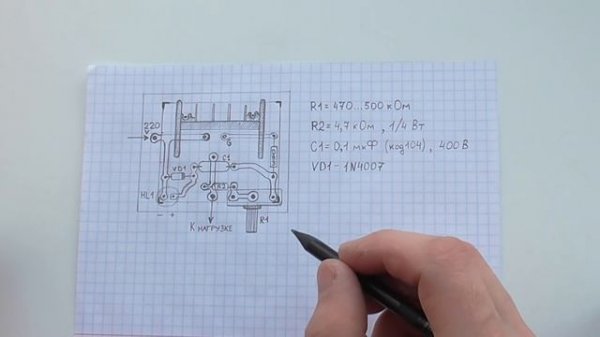 220
V
G
C1
VD1
R2
HL1
- +
R1
К НАГРУЗКЕ
R1 = 470...500 кОм
R2 = 4,7 кОм , 1/4 Вт
C1 = 0,1 мкФ (код 104) , 400 В
VD1 - 1N4007